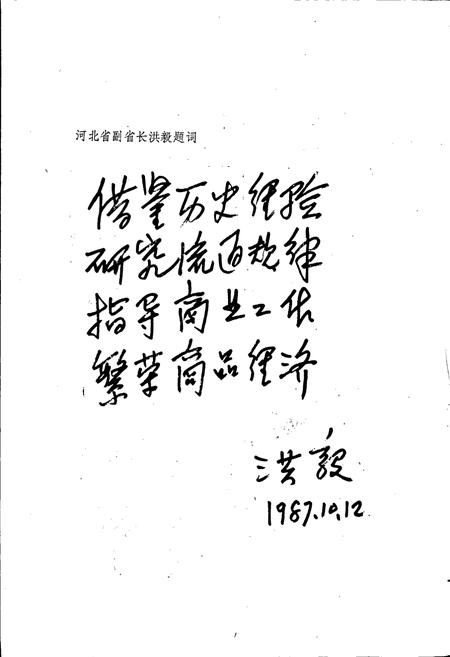 河北省副省长洪毅题词
借鉴历史经验
研究流通规律
指导商业工作
繁荣商品经济
洪毅
1987.10.12